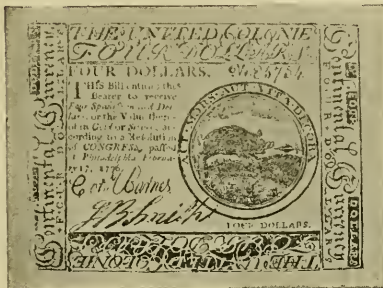 THE UNITED COLONIE
FOUR DOLLARS.
FOUR DOLLARS.
THIS Bill entitles the
Bearer to receive
Four Spanish milled Dol
lars, or the Value there
of in Gold or Silver, ac
cording to a Resolution
of CONGRESS, passed
at Philadelphia, Februa
ry 17, 1776.
AUT MORS AUT VITA DECORA
Continental Currency
FOUR DOLLARS
Continental Currency
FOUR DOLLARS
FOUR DOLLARS.